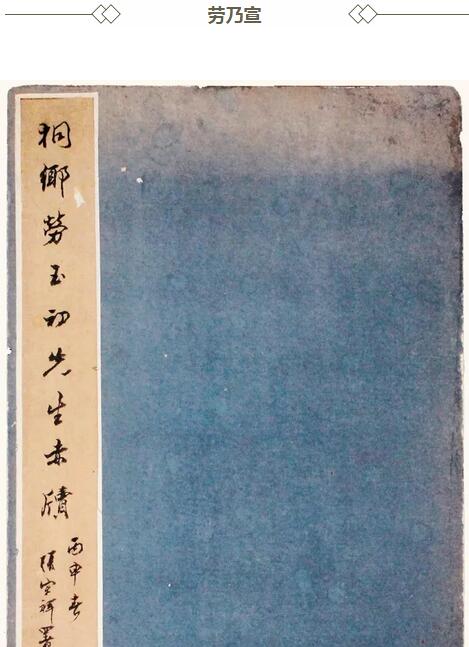 劳乃宣
桐鄉勞玉初先生赤牘
丙申春
張宗祥署